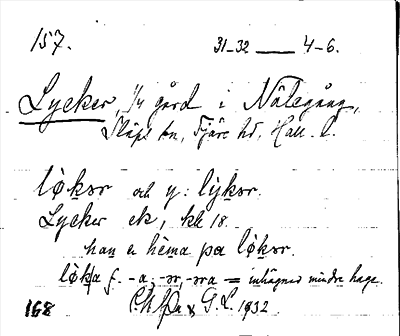 157.
31-32 — 4-6.
Lycker, 1/4 gård i Nötegång,
Släps sn, Fjäre hd, Hall. l.
lø̀kər och y: lỳkər.
Lycker ek, kl 18
han e hèma pa lø̀kər.
lø̀ka f. -a, -ər, -əra = inhägnad mindre hage.
168 1932